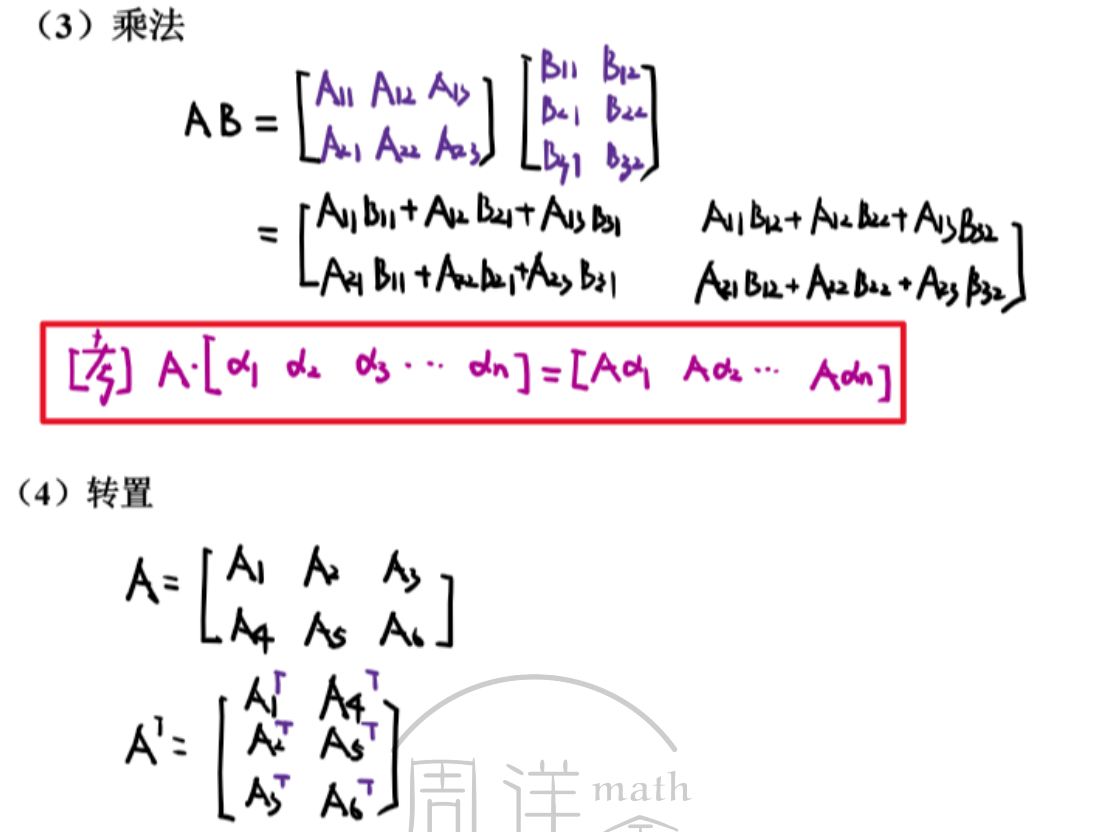 （3）乘法
AB = [A₁₁ A₁₂ A₁₃ A₂₁ A₂₂ A₂₃] [B₁₁ B₁₂ B₂₁ B₂₂ B₃₁ B₃₂]
= [A₁₁B₁₁ + A₁₂B₂₁ + A₁₃B₃₁ A₁₁B₁₂ + A₁₂B₂₂ + A₁₃B₃₂
A₂₁B₁₁ + A₂₂B₂₁ + A₂₃B₃₁ A₂₁B₁₂ + A₂₂B₂₂ + A₂₃B₃₂]
A·[α₁ α₂ α₃ ··· αn] = [Aα₁ Aα₂ ··· Aαn]
（4）转置
A = [A₁ A₂ A₃
A₄ A₅ A₆]
Aᵀ = [A₁ᵀ A₄ᵀ
A₂ᵀ A₅ᵀ
A₃ᵀ A₆ᵀ]
周洋math